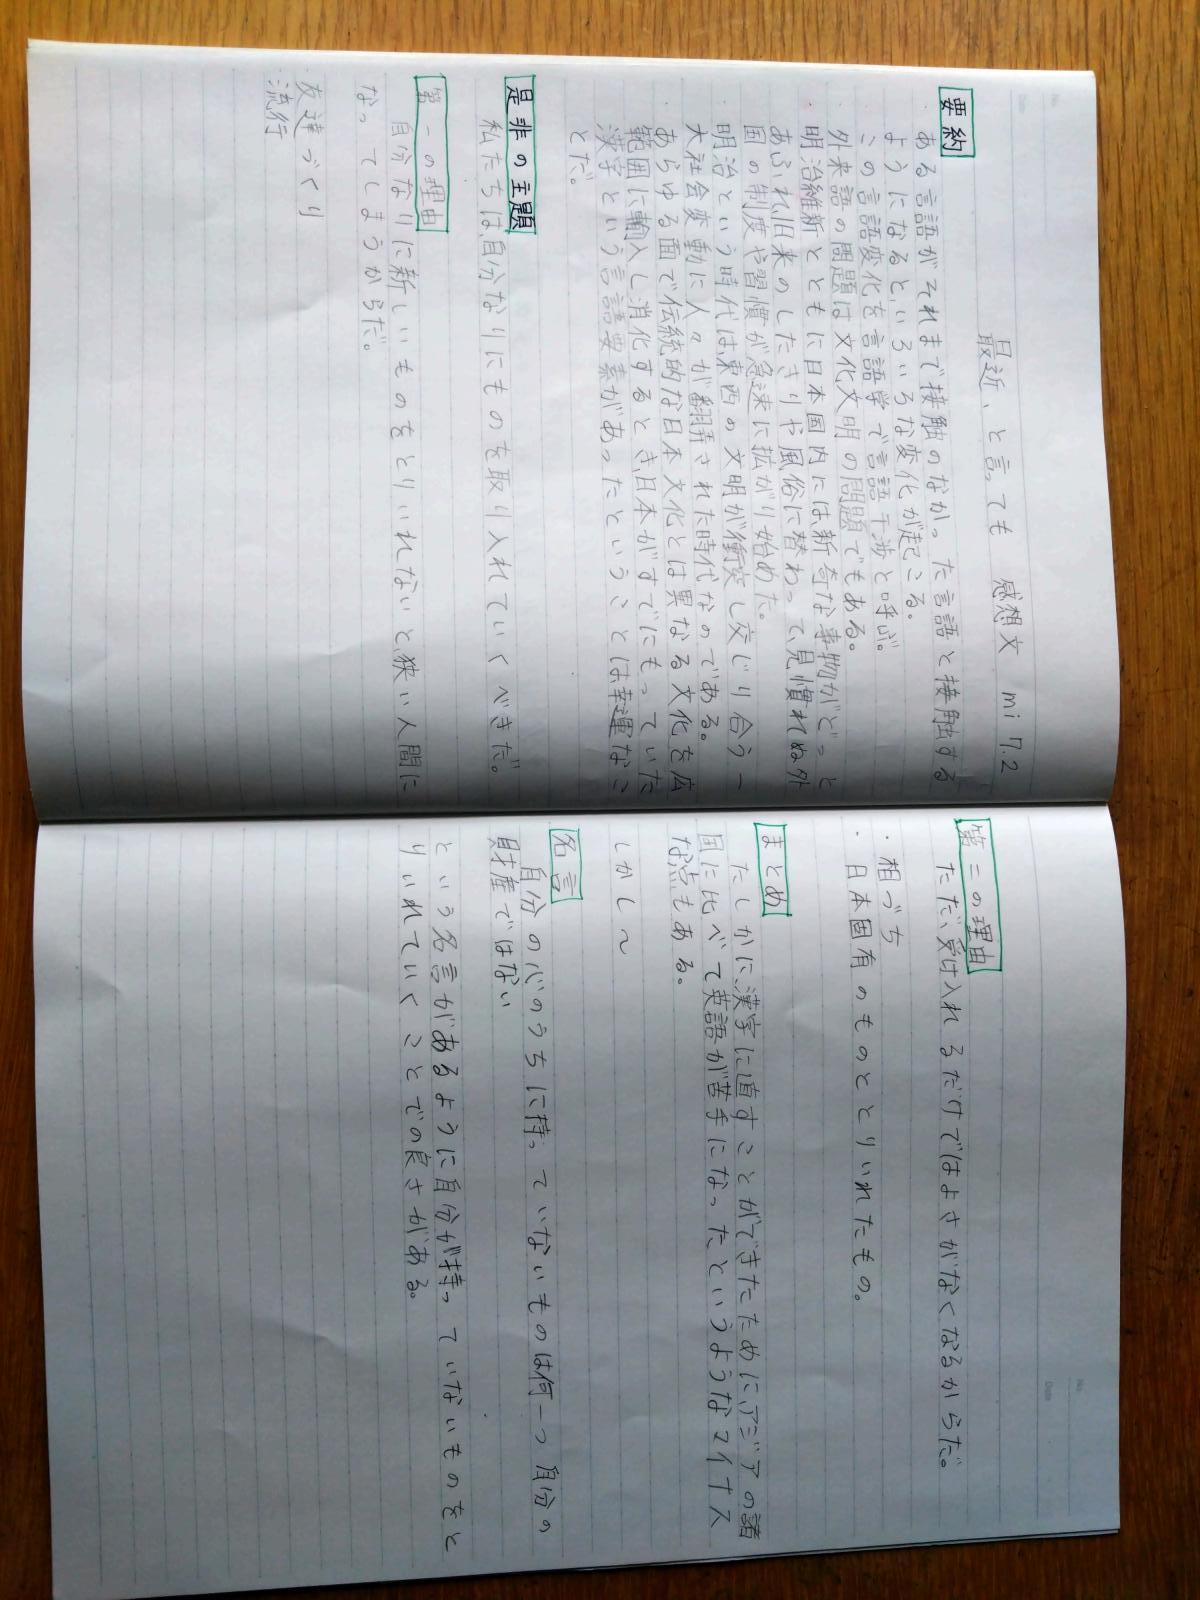 最近、と言っても 感想文 mi 7.2
要約
・ある言語がそれまで接触のなかった言語と接触する
ようになると、いろいろな変化が起こる。
・この言語変化を言語学で言語干渉と呼ぶ。
・外来語の問題は文化文明の問題でもある。
・明治維新とともに日本国内には、新奇な事物がどっと
あふれ、旧来のしたきりや風俗に替わって、見慣れぬ外
国の制度や習慣が急速に拡がり始めた。
・明治という時代は、東西の文明が衝突し交じり合う一
大社会変動に人々が翻弄された時代なのである。
・あらゆる面で伝統的な日本文化とは異なる文化を広
範囲に輸入し消化するとき、日本がすでにもっていた
漢字という言語要素があったということは、幸運なこ
とだ。
是非の主題
私たちは、自分なりにものを取り入れていくべきだ。
第一の理由
自分なりに新しいものをとりいれないと、狭い人間に
なってしまうからだ。
友達づくり
流行
No.
Date
第二の理由
ただ、受け入れるだけではよさがなくなるからだ。
・相づち
日本固有のものととりいれたもの。
まとめ
たしかに、漢字に直すことができたために、アジアの諸
国に比べて英語が苦手になったというようなマイナス
な点もある。
しかし〜
名言
自分の心のうちに持っていないものは何一つ自分の
財産ではない
という名言があるように自分が持っていないものをと
りいれていくことでの良さがある。